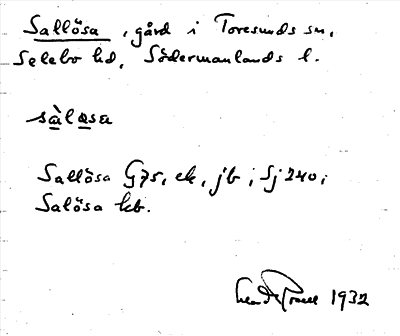 Sallösa, gård i Toresunds sn,
Selebo hd, Södermanlands l.
sàlǫsa
Sallösa G75, ek, jb; Sj 240;
Salösa kb.
1932